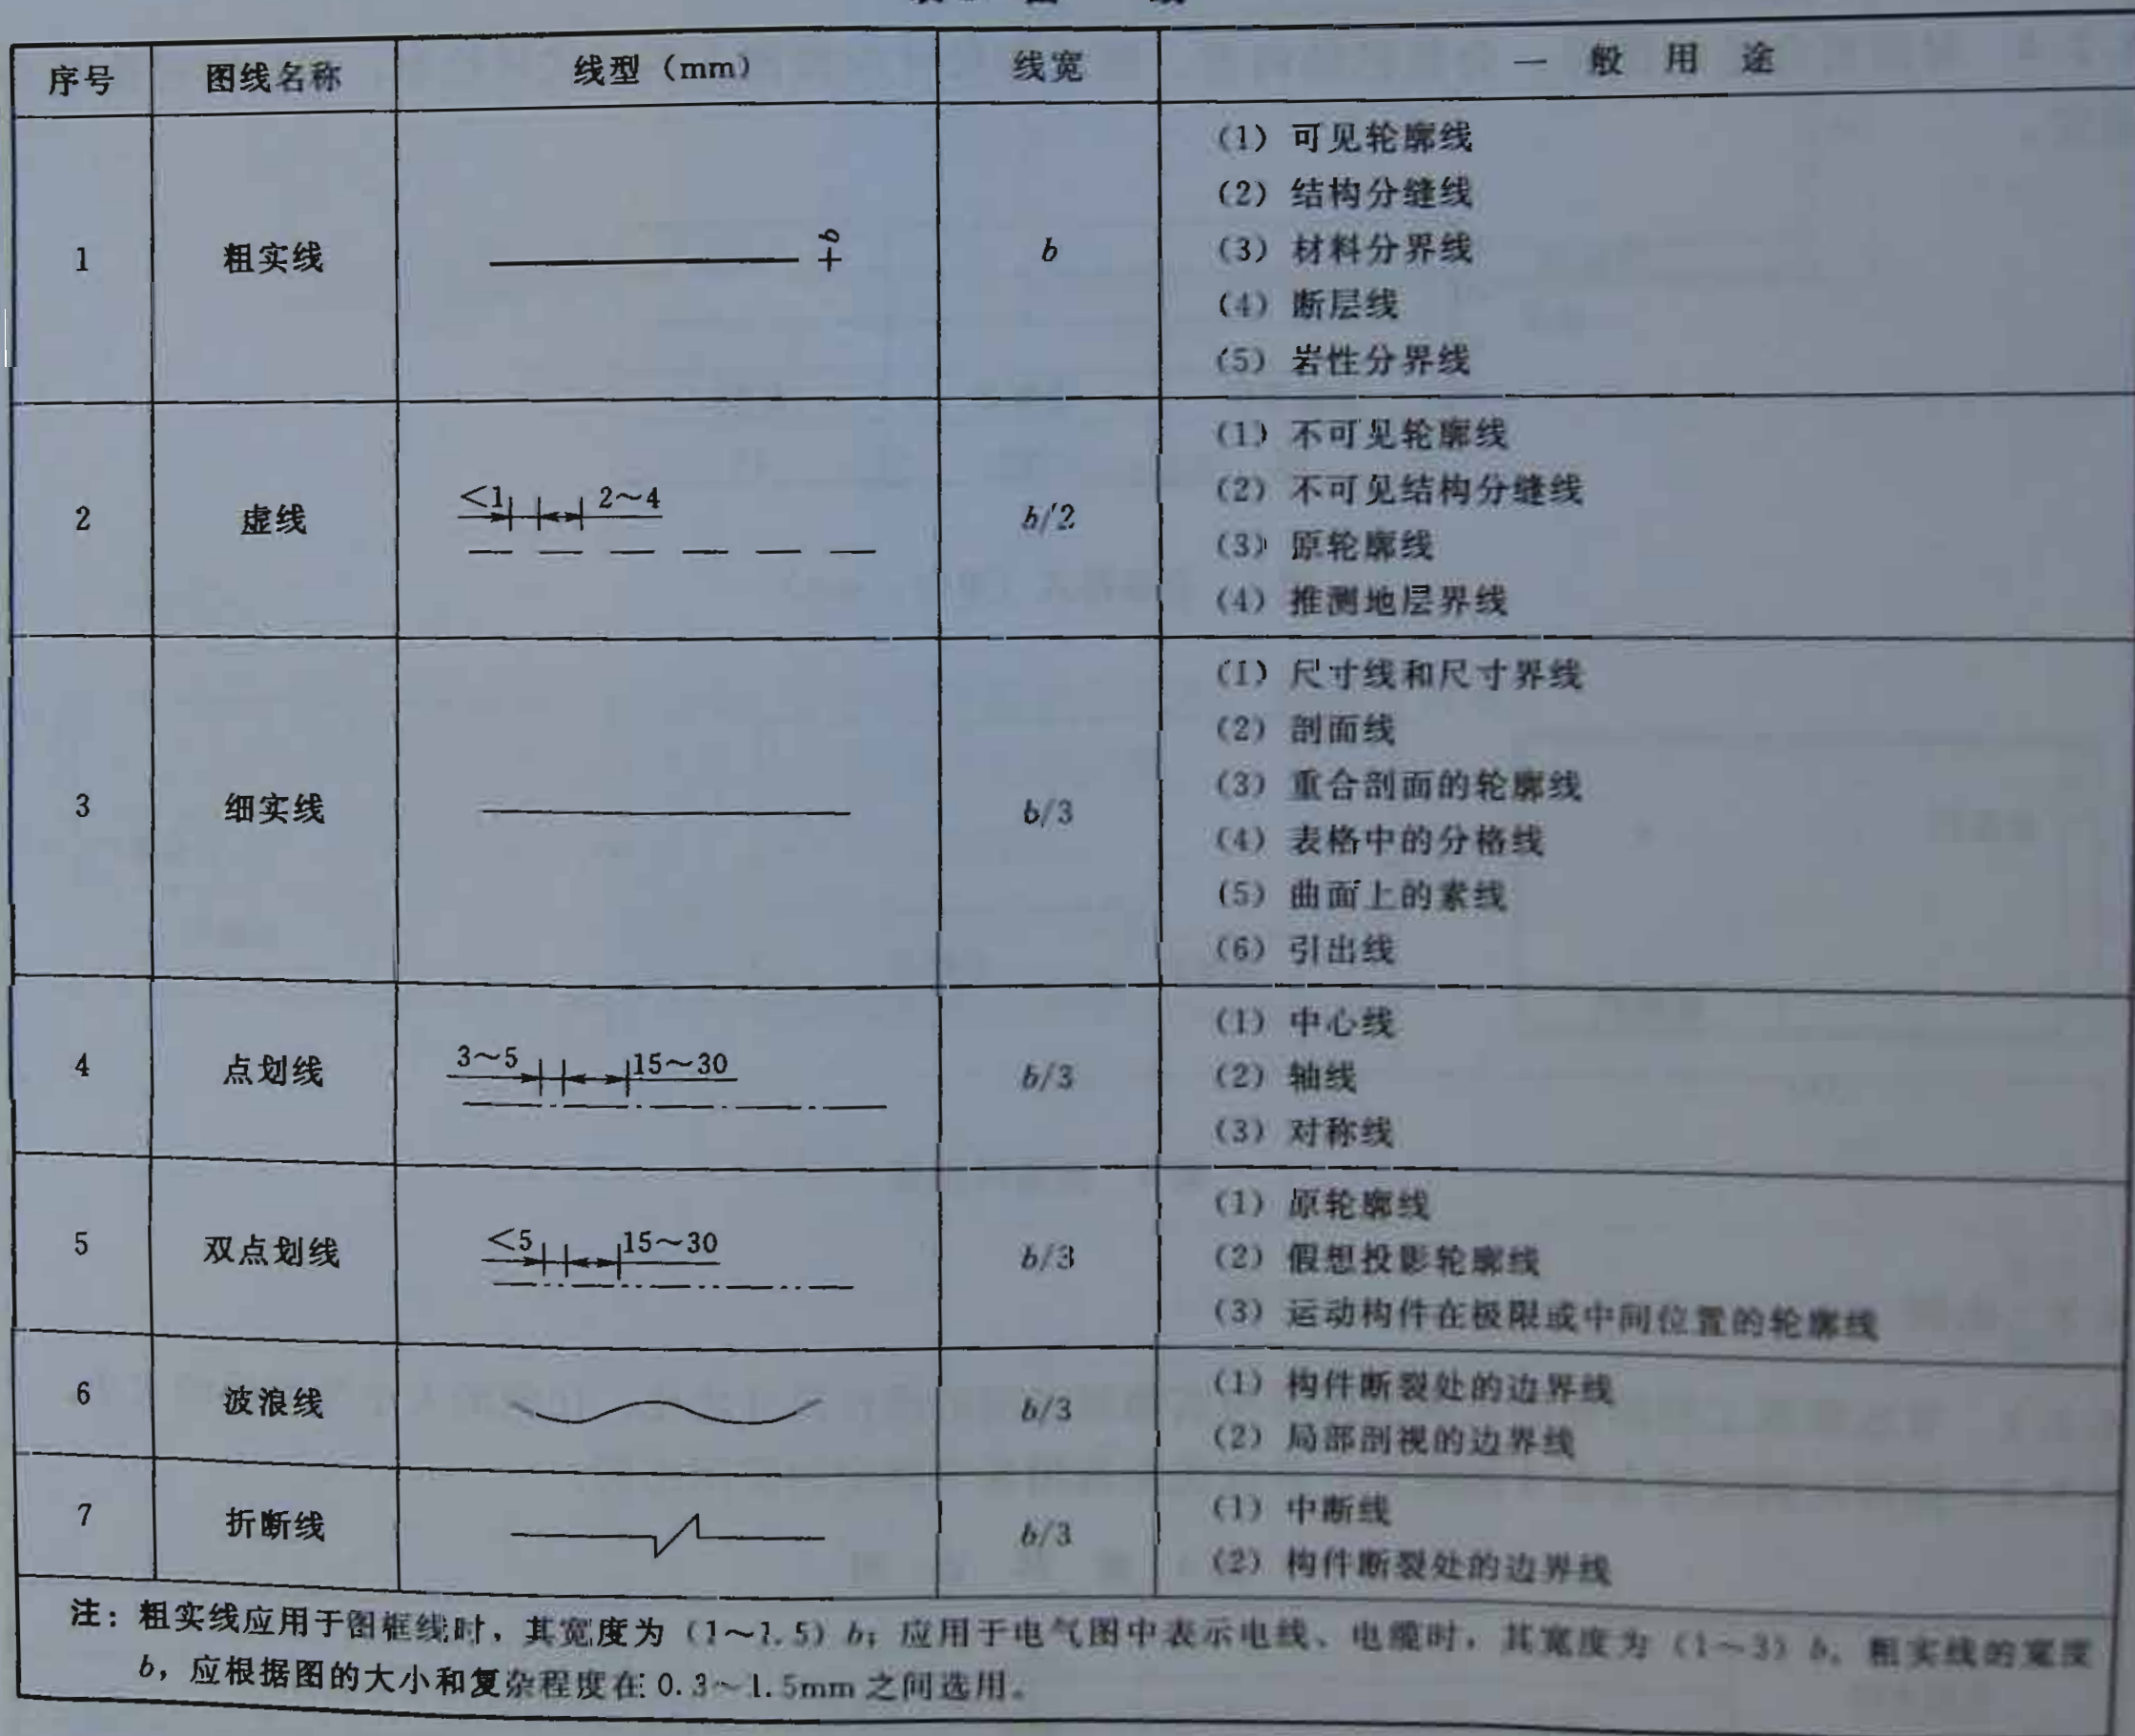 序号 图线名称 线型（mm） 线宽 一般用途
1 粗实线 b b
（1）可见轮廓线
（2）结构分缝线
（3）材料分界线
（4）断层线
（5）岩性分界线
2 虚线 <1 2～4 b/2
（1）不可见轮廓线
（2）不可见结构分缝线
（3）原轮廓线
（4）推测地层界线
3 细实线 b/3
（1）尺寸线和尺寸界线
（2）剖面线
（3）重合剖面的轮廓线
（4）表格中的分格线
（5）曲面上的素线
（6）引出线
4 点划线 3～5 15～30 b/3
（1）中心线
（2）轴线
（3）对称线
5 双点划线 <5 15～30 b/3
（1）原轮廓线
（2）假想投影轮廓线
（3）运动构件在极限或中间位置的轮廓线
6 波浪线 b/3
（1）构件断裂处的边界线
（2）局部剖视的边界线
7 折断线 b/3
（1）中断线
（2）构件断裂处的边界线
注：粗实线应用于图框线时，其宽度为（1～1.5）b；应用于电气图中表示电线、电缆时，其宽度为（1～3）b。粗实线的宽度
b，应根据图的大小和复杂程度在0.3～1.5mm之间选用。